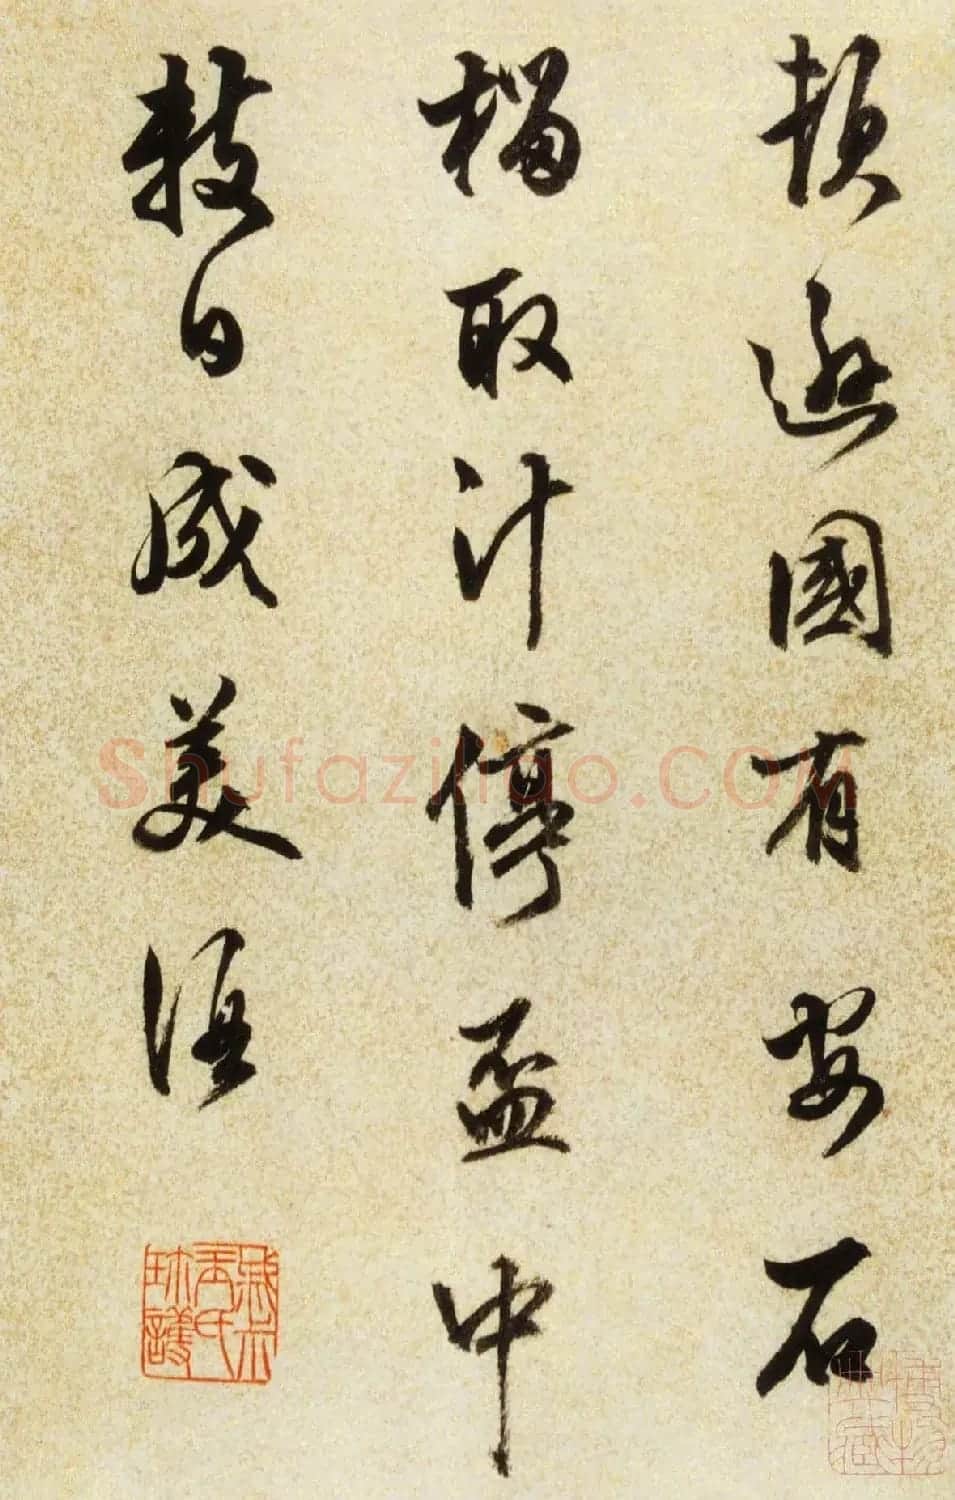 頓遜國有安石
榴取汁停盃中
數日成美酒
Shufaziliao.COM